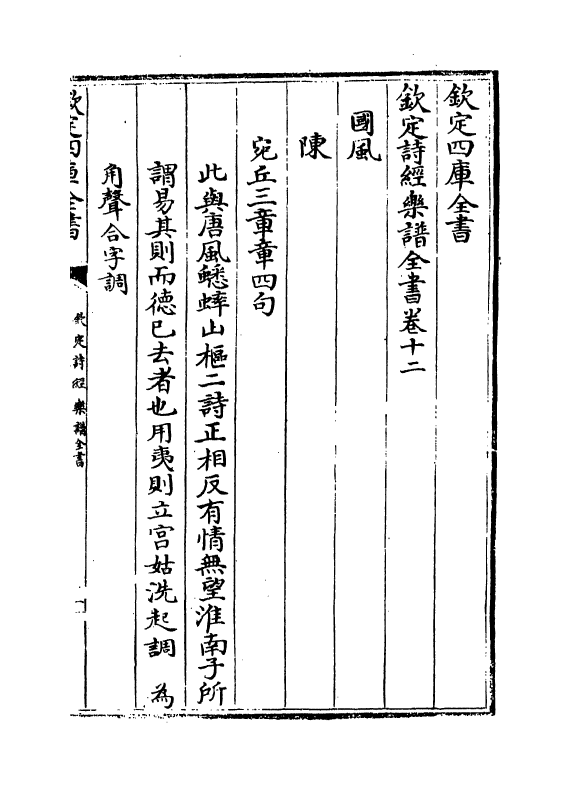 欽定四庫全書
欽定詩經樂譜全書卷十二
國風
陳
宛丘三章章四句
此與唐風蟋蟀山樞二詩正相反有情無望淮南子所
謂易其則而德已去者也用夷則立宮姑洗起調 為
角聲合字調
欽定四庫全書
欽定詩經樂譜全書
一